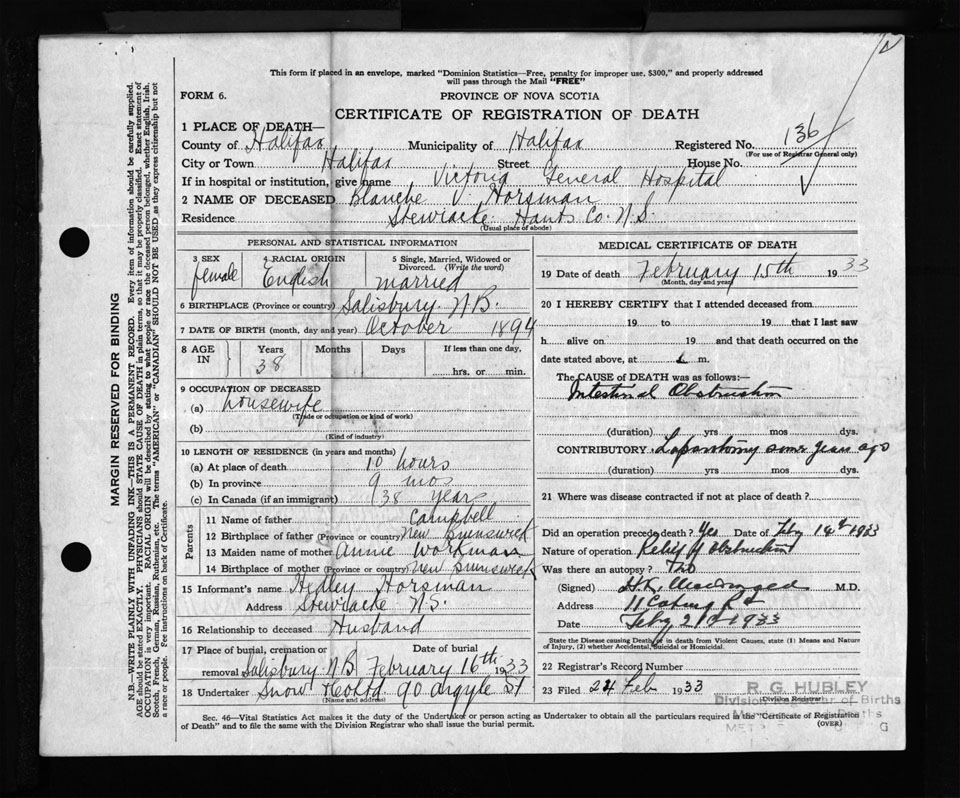 This form if placed in an envelope, marked "Dominion Statistics—Free, penalty for improper use, $300," and properly addressed
will pass through the Mail "FREE"
FORM 6.
PROVINCE OF NOVA SCOTIA
CERTIFICATE OF REGISTRATION OF DEATH
1 PLACE OF DEATH—
County of Halifax Municipality of Halifax Registered No. 136
(For use of Registrar General only)
City or Town Halifax Street House No.
If in hospital or institution, give name Victoria General Hospital
2 NAME OF DECEASED Blanche V Horsman
Residence Stewiacke Hants Co. N.S.
(Usual place of abode)
PERSONAL AND STATISTICAL INFORMATION
3 SEX 4 RACIAL ORIGIN 5 Single, Married, Widowed or
Divorced. (Write the word)
female English married
6 BIRTHPLACE (Province or country) Salisbury N.B.
7 DATE OF BIRTH (month, day and year) October 1894
8 AGE IN Years Months Days If less than one day,
38 hrs. or min.
9 OCCUPATION OF DECEASED
(a) housewife
(Trade or occupation or kind of work)
(b)
(Kind of industry)
10 LENGTH OF RESIDENCE (in years and months)
(a) At place of death 10 hours
(b) In province 9 mos
(c) In Canada (if an immigrant) 38 years
Parents
11 Name of father Campbell
12 Birthplace of father (Province or country) New Brunswick
13 Maiden name of mother Annie Workman
14 Birthplace of mother (Province or country) New Brunswick
15 Informant's name Hedley Horsman
Address Stewiacke N.S.
16 Relationship to deceased Husband
17 Place of burial, cremation or Date of burial
removal Salisbury N.B. February 16th 1933
18 Undertaker Snow & Co Ltd 90 Argyle St
(Name and address)
MEDICAL CERTIFICATE OF DEATH
19 Date of death February 15th 1933
(Month, day and year)
20 I HEREBY CERTIFY that I attended deceased from
19 to 19 that I last saw
h alive on 19 and that death occurred on the
date stated above, at m.
The CAUSE OF DEATH was as follows:—
Intestinal Obstruction
(duration) yrs mos dys.
CONTRIBUTORY Laparotomy some years ago
(duration) yrs mos dys.
21 Where was disease contracted if not at place of death?
Did an operation precede death? Yes Date of Feby 14th 1933
Nature of operation Relief of obstruction
Was there an autopsy? No
(Signed) H.K. M.D.
Address 11 Coburg Rd
Date Feby 21st 1933
State the Disease causing Death, or in death from Violent Causes, state (1) Means and Nature
of Injury, (2) whether Accidental, Suicidal or Homicidal.
22 Registrar's Record Number
23 Filed 24 Feb 1933
(Division Registrar)
R. G. HUBLEY
Division Registrar of Births
Deaths
Sec. 46—Vital Statistics Act makes it the duty of the Undertaker or person acting as Undertaker to obtain all the particulars required in the "Certificate of Registration
of Death" and to file the same with the Division Registrar who shall issue the burial permit.
(OVER)
MARGIN RESERVED FOR BINDING
N.B.—WRITE PLAINLY WITH UNFADING INK—THIS IS A PERMANENT RECORD. Every item of information should be carefully supplied.
AGE should be stated EXACTLY. PHYSICIANS should STATE CAUSE OF DEATH in plain terms, so that it may be properly classified. Exact statement of
OCCUPATION is very important. RACIAL ORIGIN will be described by stating to what people or race the deceased person belonged, whether English, Irish,
Scotch, French, German, Russian, Ruthenian, etc. The terms "AMERICAN" or "CANADIAN" SHOULD NOT BE USED as they express citizenship but not
a race or people. Fee instructions on back of Certificate.